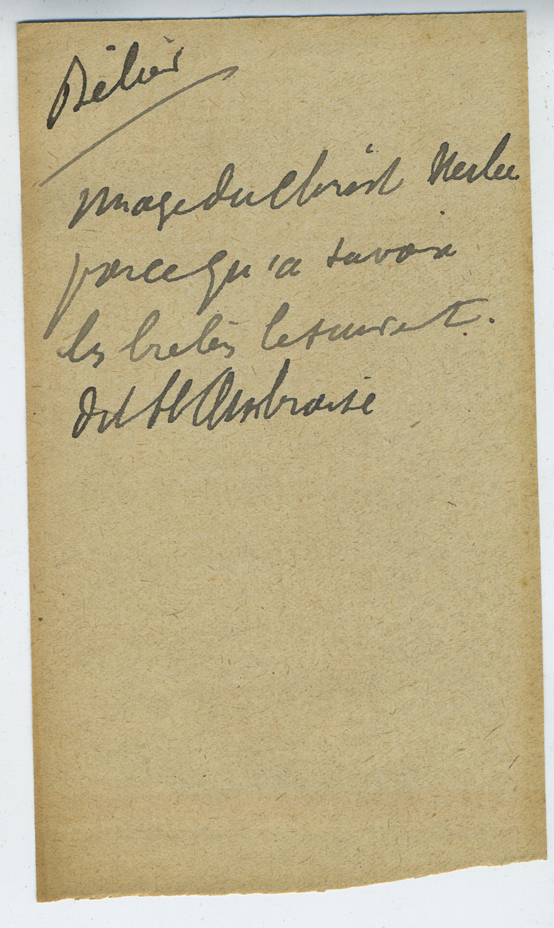 Bélier
Image du Christ Verbe
parce qu'a sa voix
les brebis le suivent.
dit St Ambroise